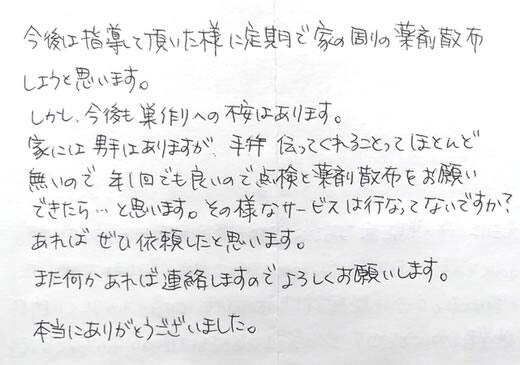 今後は指導して頂いた様に定期的で家の周りの薬剤散布
しようと思います。
しかし、今後も巣作りへの不安はあります。
家には男手はありますが、手伝ってくれることってほとんど
無いので年1回でも良いので点検と薬剤散布をお願い
できたら…と思います。その様なサービスは行なってないですか?
あればぜひ依頼したと思います。
また何かあれば連絡しますのでよろしくお願いします。
本当にありがとうございました。